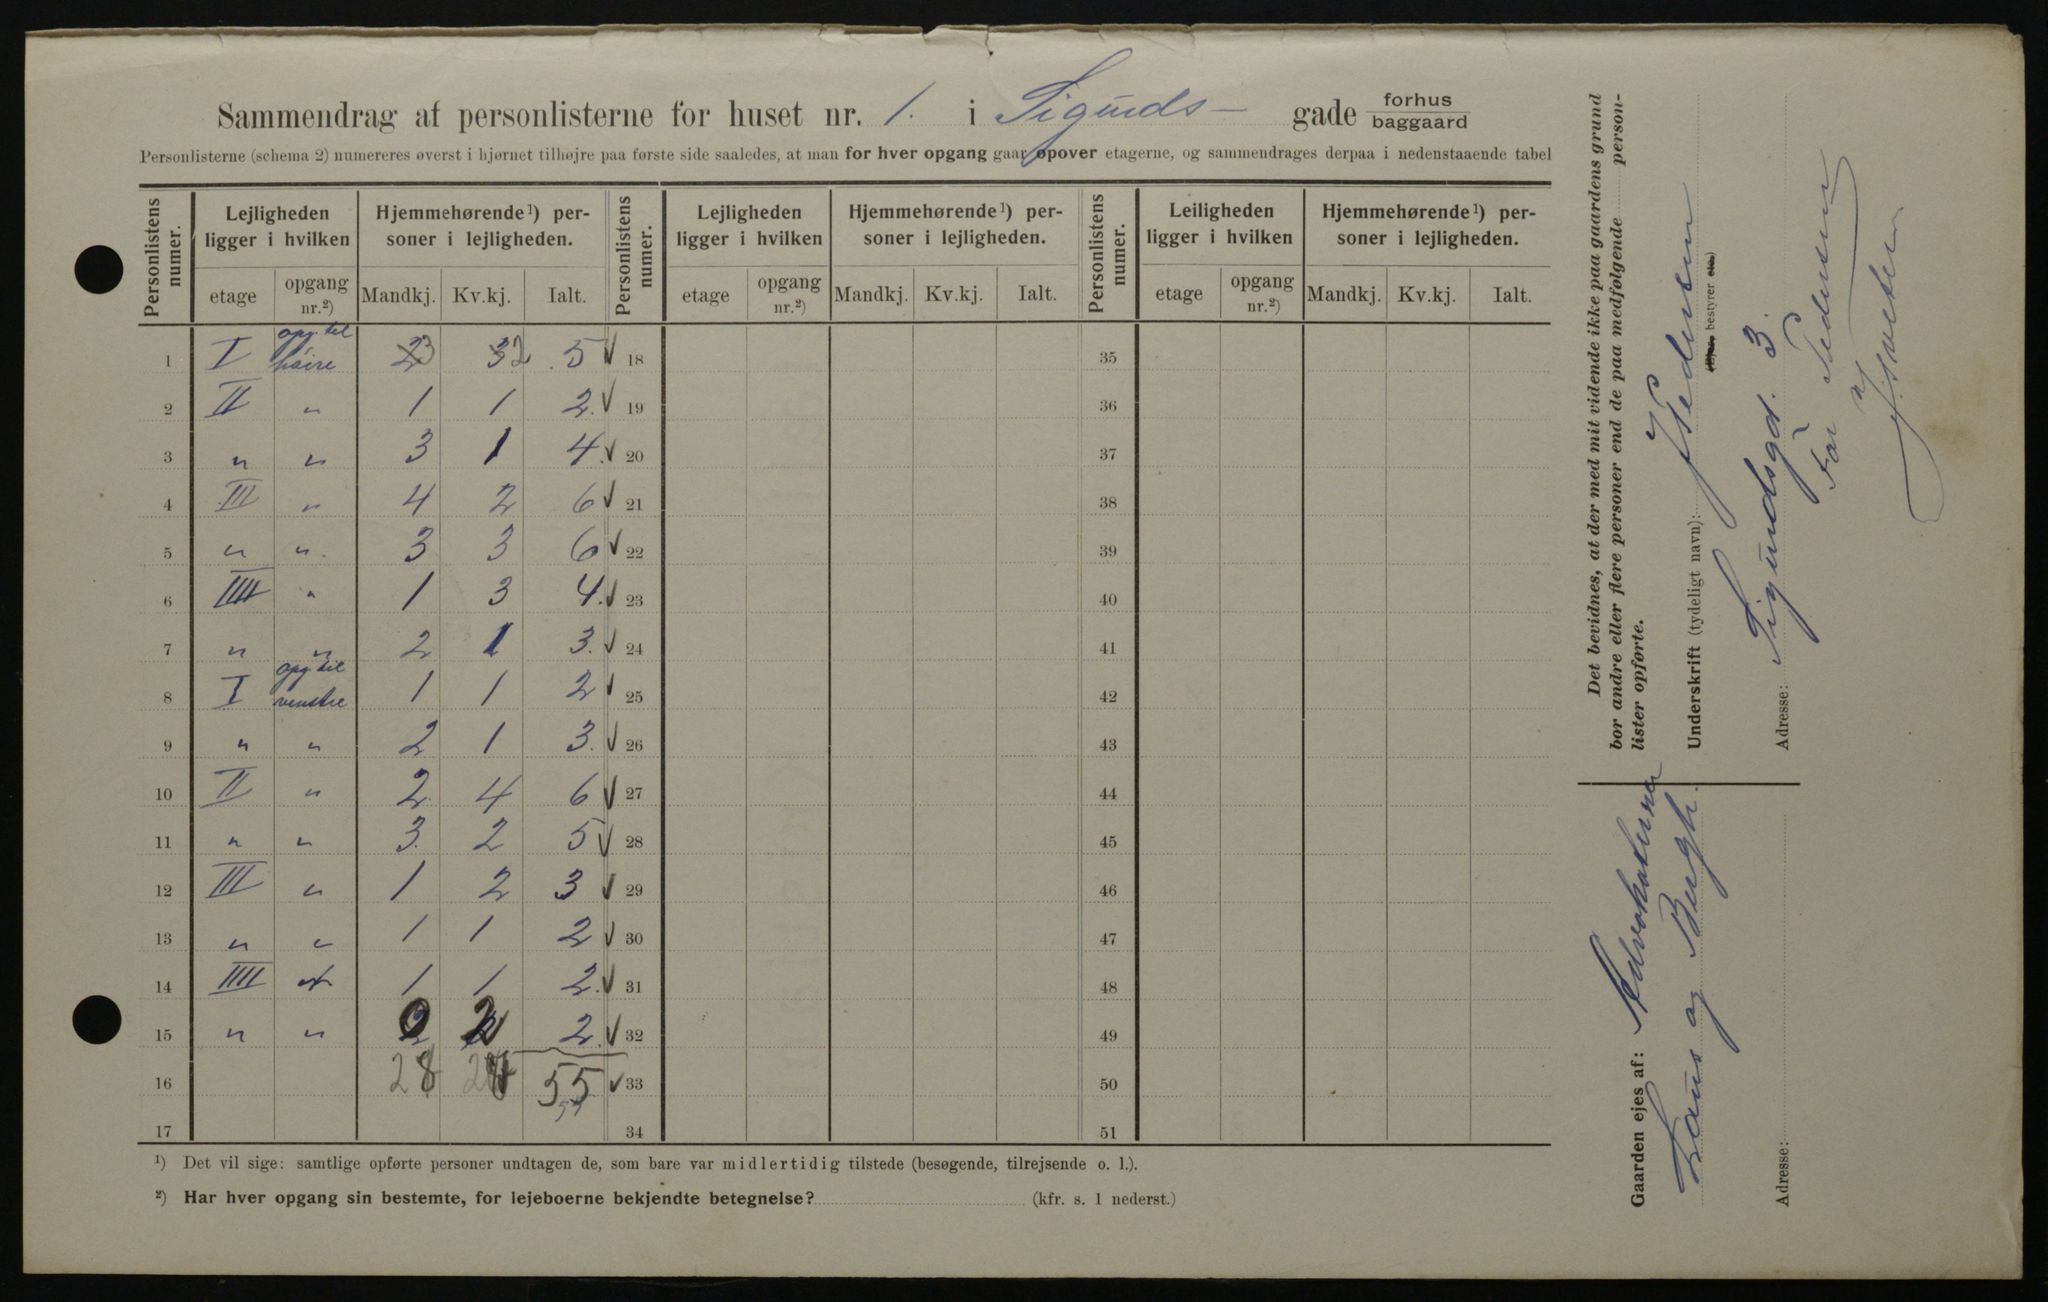 Sammendrag af personlisterne for huset nr. 1. i Sigurds- gade forhus baggaard
Personlisterne (schema 2) numereres øverst i hjørnet tilhøjre paa første side saaledes, at man for hver opgang gaar opover etagerne, og sammendrages derpaa i nedenstaaende tabel
Personlistens numer. Lejligheden ligger i hvilken Hjemmehørende ¹) personer i lejligheden. Personlistens numer. Lejligheden ligger i hvilken Hjemmehørende ¹) personer i lejligheden. Personlistens numer. Leiligheden ligger i hvilken Hjemmehørende ¹) personer i lejligheden.
etage opgang nr.²) Mandkj. Kv.kj. Ialt. etage opgang nr.²) Mandkj. Kv.kj. Ialt. etage opgang nr.²) Mandkj. Kv.kj. Ialt.
1 I opg. til høire 23 32 5 ✓ 18 35
2 II " 1 1 2. ✓ 19 36
3 " " 3 1 4. ✓ 20 37
4 III " 4 2 6 ✓ 21 38
5 " " 3 3 6 ✓ 22 39
6 IIII " 1 3 4. ✓ 23 40
7 " " 2 1 3. ✓ 24 41
8 I opg. til venstre 1 1 2 ✓ 25 42
9 " " 2 1 3. ✓ 26 43
10 II " 2 4 6 ✓ 27 44
11 " " 3 2 5 ✓ 28 45
12 III " 1 2 3 ✓ 29 46
13 " " 1 1 2 ✓ 30 47
14 IIII " 1 1 2. ✓ 31 48
15 " " 0 2 2. ✓ 32 49
16 28 55 ✓ 33 50
17 34 51
¹) Det vil sige: samtlige opførte personer undtagen de, som bare var midlertidig tilstede (besøgende, tilrejsende o. l.).
²) Har hver opgang sin bestemte, for lejeboerne bekjendte betegnelse? (kfr. s. 1 nederst.)
Det bevidnes, at der med mit vidende ikke paa gaardens grund
bor andre eller flere personer end de paa medfølgende person-
lister opførte.
Underskrift (tydeligt navn): J Pedersen
(Ejer, bestyrer etc.)
Adresse: Sigurdsgd. 3.
For Pedersen
Gaarden ejes af: Advokaterne
og Bergh.
Adresse: